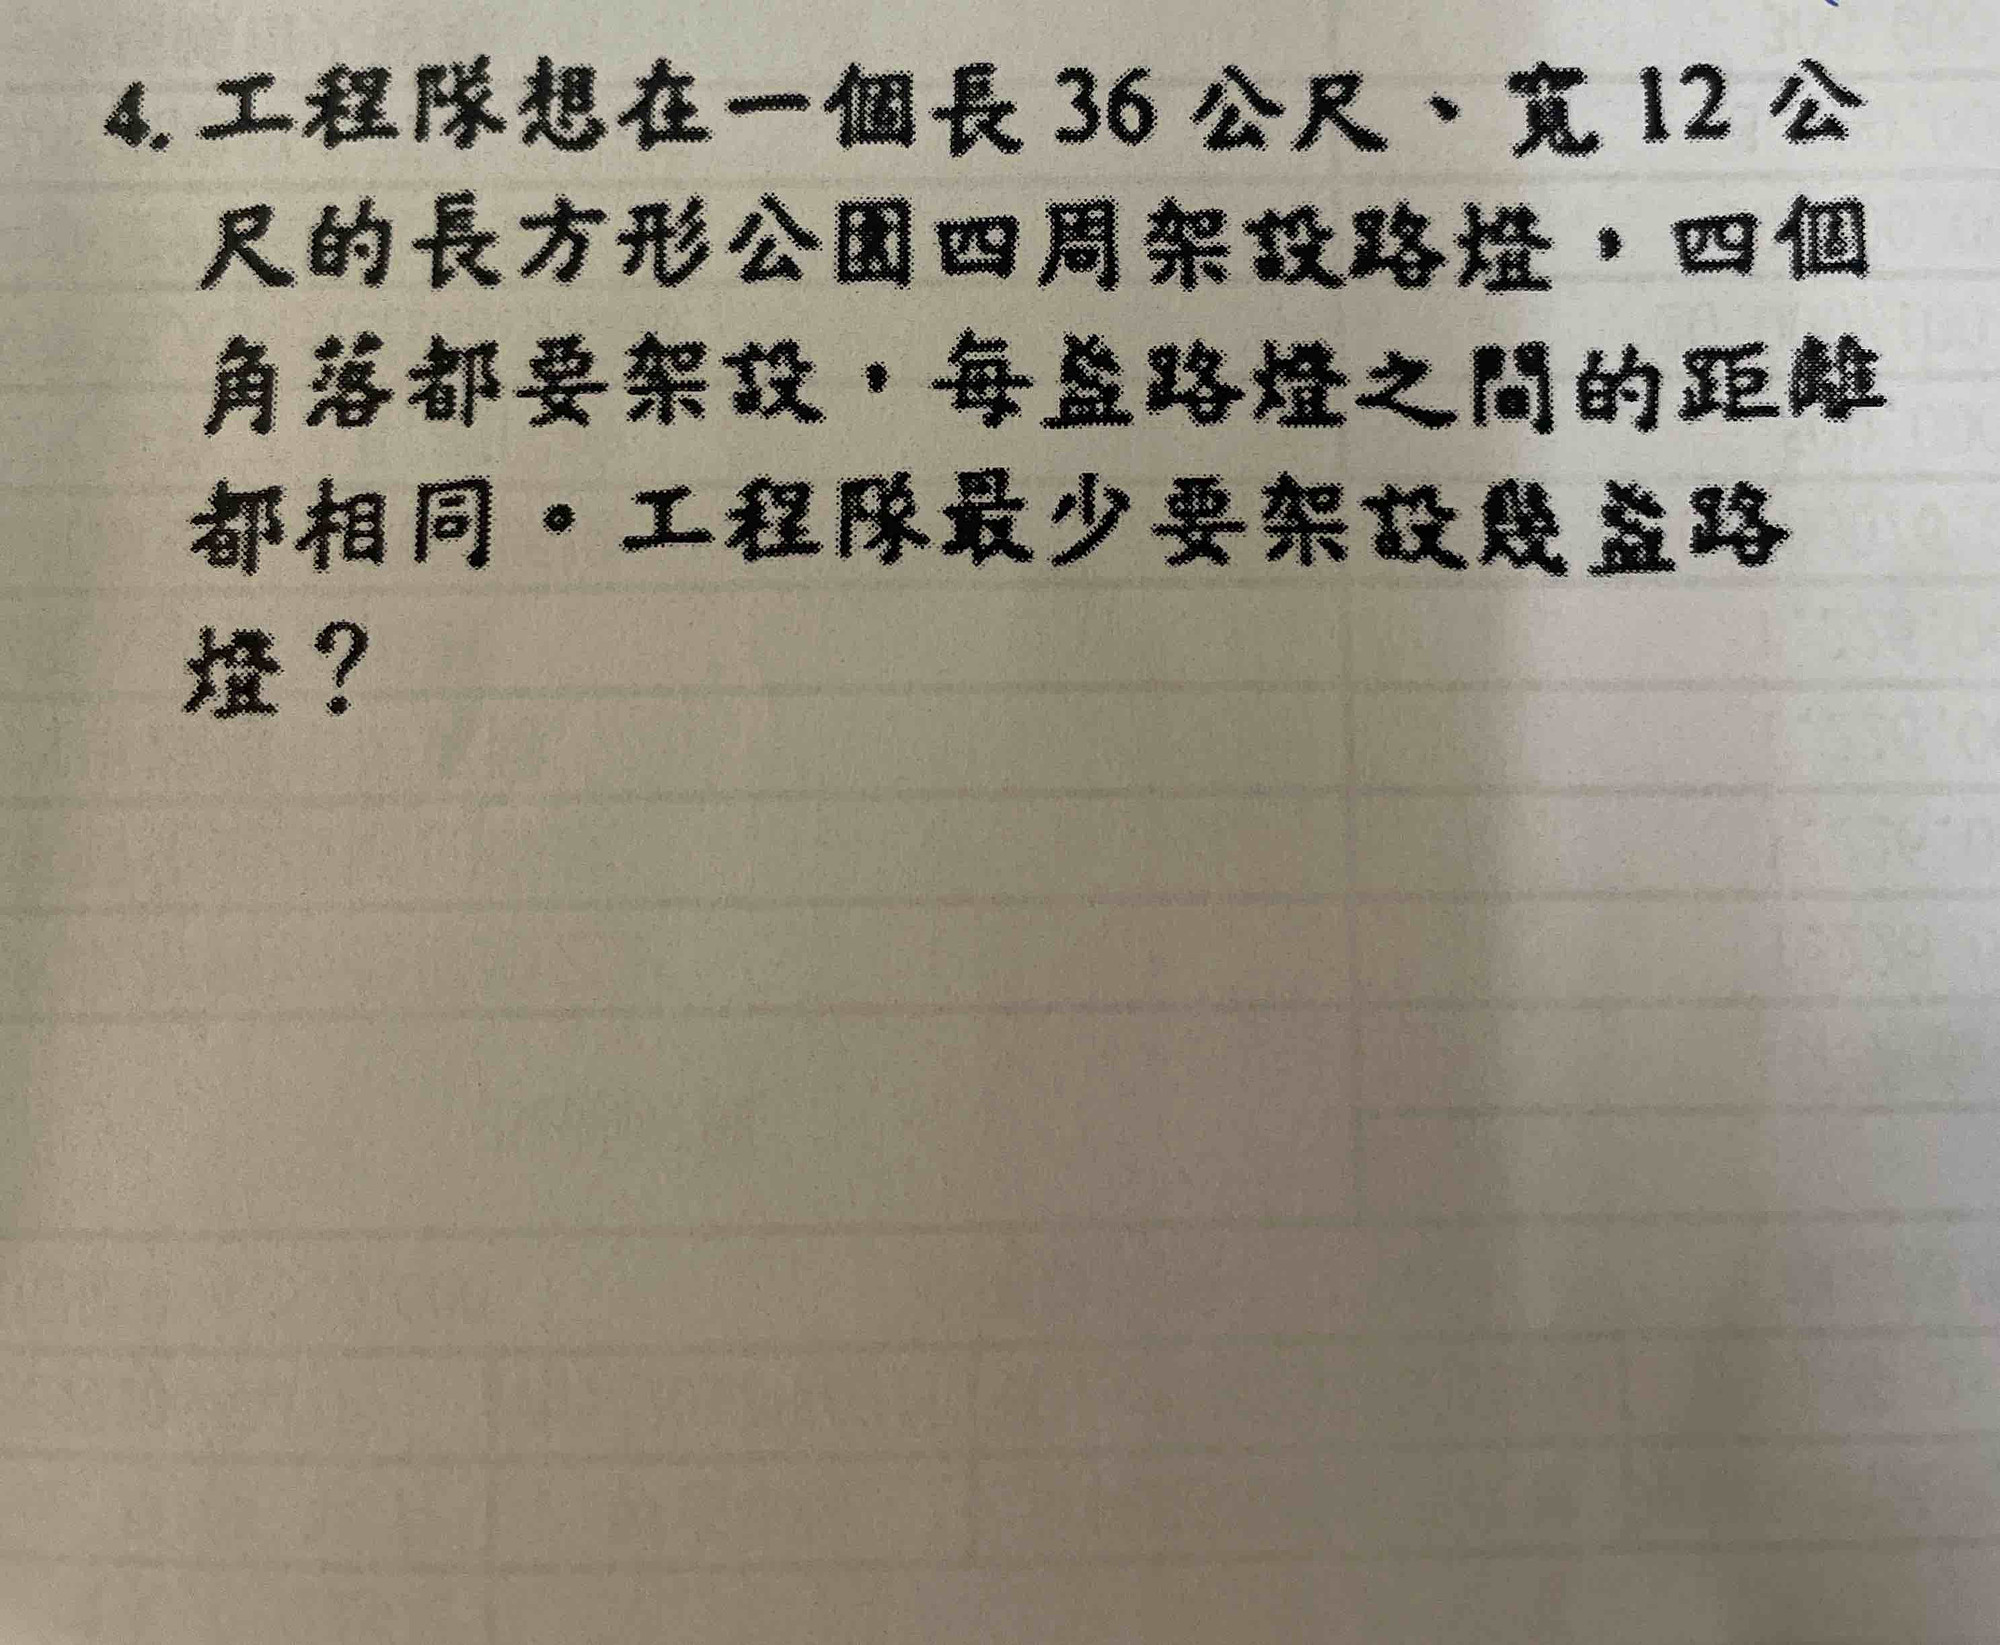 4. 工程隊想在一個長 36 公尺、寬 12 公
尺的長方形公園四周架設路燈，四個
角落都要架設，每盞路燈之間的距離
都相同。工程隊最少要架設幾盞路
燈？